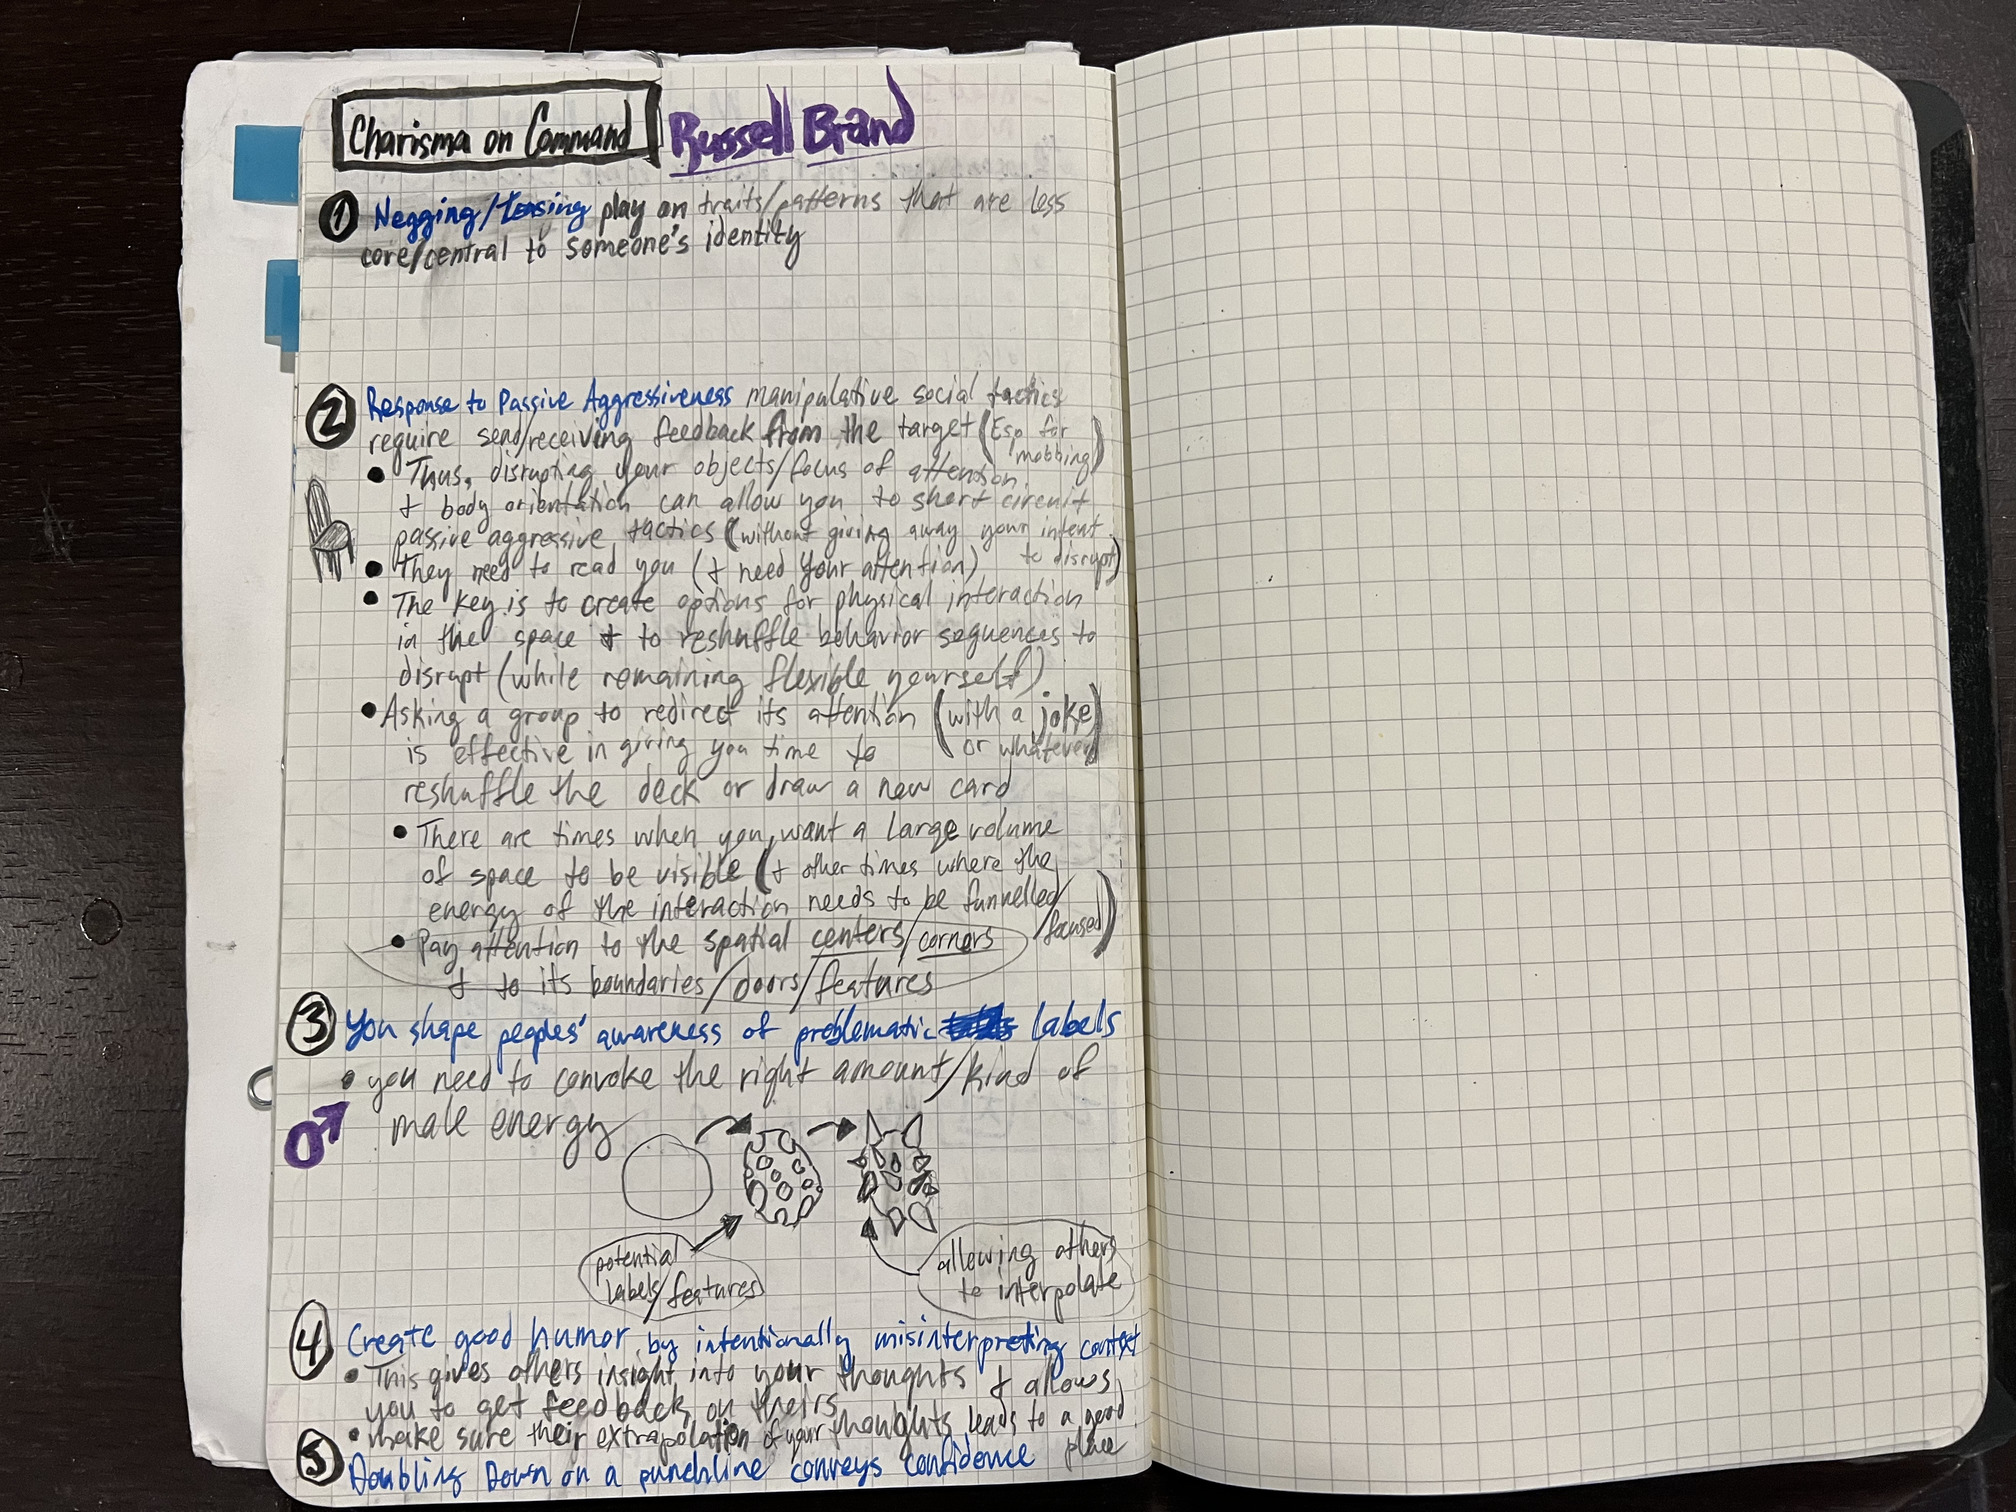 Charisma on Command Russell Brand
1 Negging/teasing play on traits/patterns that are less
core/central to someone's identity
2 Response to Passive Aggressiveness manipulative social tactics
require send/receiving feedback from the target (Esp for
mobbing)
• Thus, disrupting your objects/focus of attention
+ body orientation can allow you to short circuit
passive aggressive tactics (without giving away your intent
to disrupt)
• They need to read you (+ need your attention)
• The key is to create options for physical interaction
in the space + to reshuffle behavior sequences to
disrupt (while remaining flexible yourself)
• Asking a group to redirect its attention (with a joke
or whatever)
is effective in giving you time to
reshuffle the deck or draw a new card
• There are times when you want a large volume
of space to be visible (+ other times where the
energy of the interaction needs to be funnelled/
focused)
• Pay attention to the spatial centers/corners
+ to its boundaries/doors/features
3 You shape peoples' awareness of problematic labels
• you need to convoke the right amount/kind of
male energy
potential
labels/features
allowing others
to interpolate
4 Create good humor by intentionally misinterpreting context
• This gives others insight into your thoughts + allows
you to get feedback on theirs
• make sure their extrapolation of your thoughts leads to a good
place
5 Doubling Down on a punchline conveys confidence